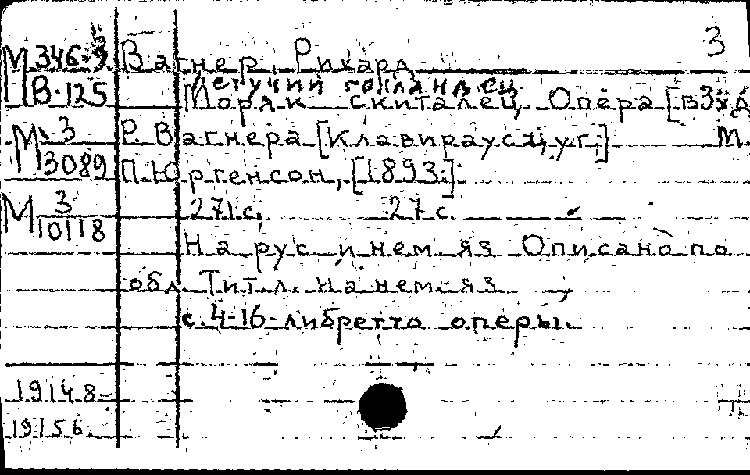 3
М 346-3 Вагнер, Рихард
В-125 Летучий голландец.
Моряк скиталец, Опера [в 3х д.
М 3 Р. Вагнера [Клавираусцуг.] М.
3089 П. Юргенсон, [1893.]
М 3 271с. 27 с.
10118
На рус и нем яз Описано по
обл. Тит. л. на нем. яз
с. 4-16-либретто оперы.
19148
19156.